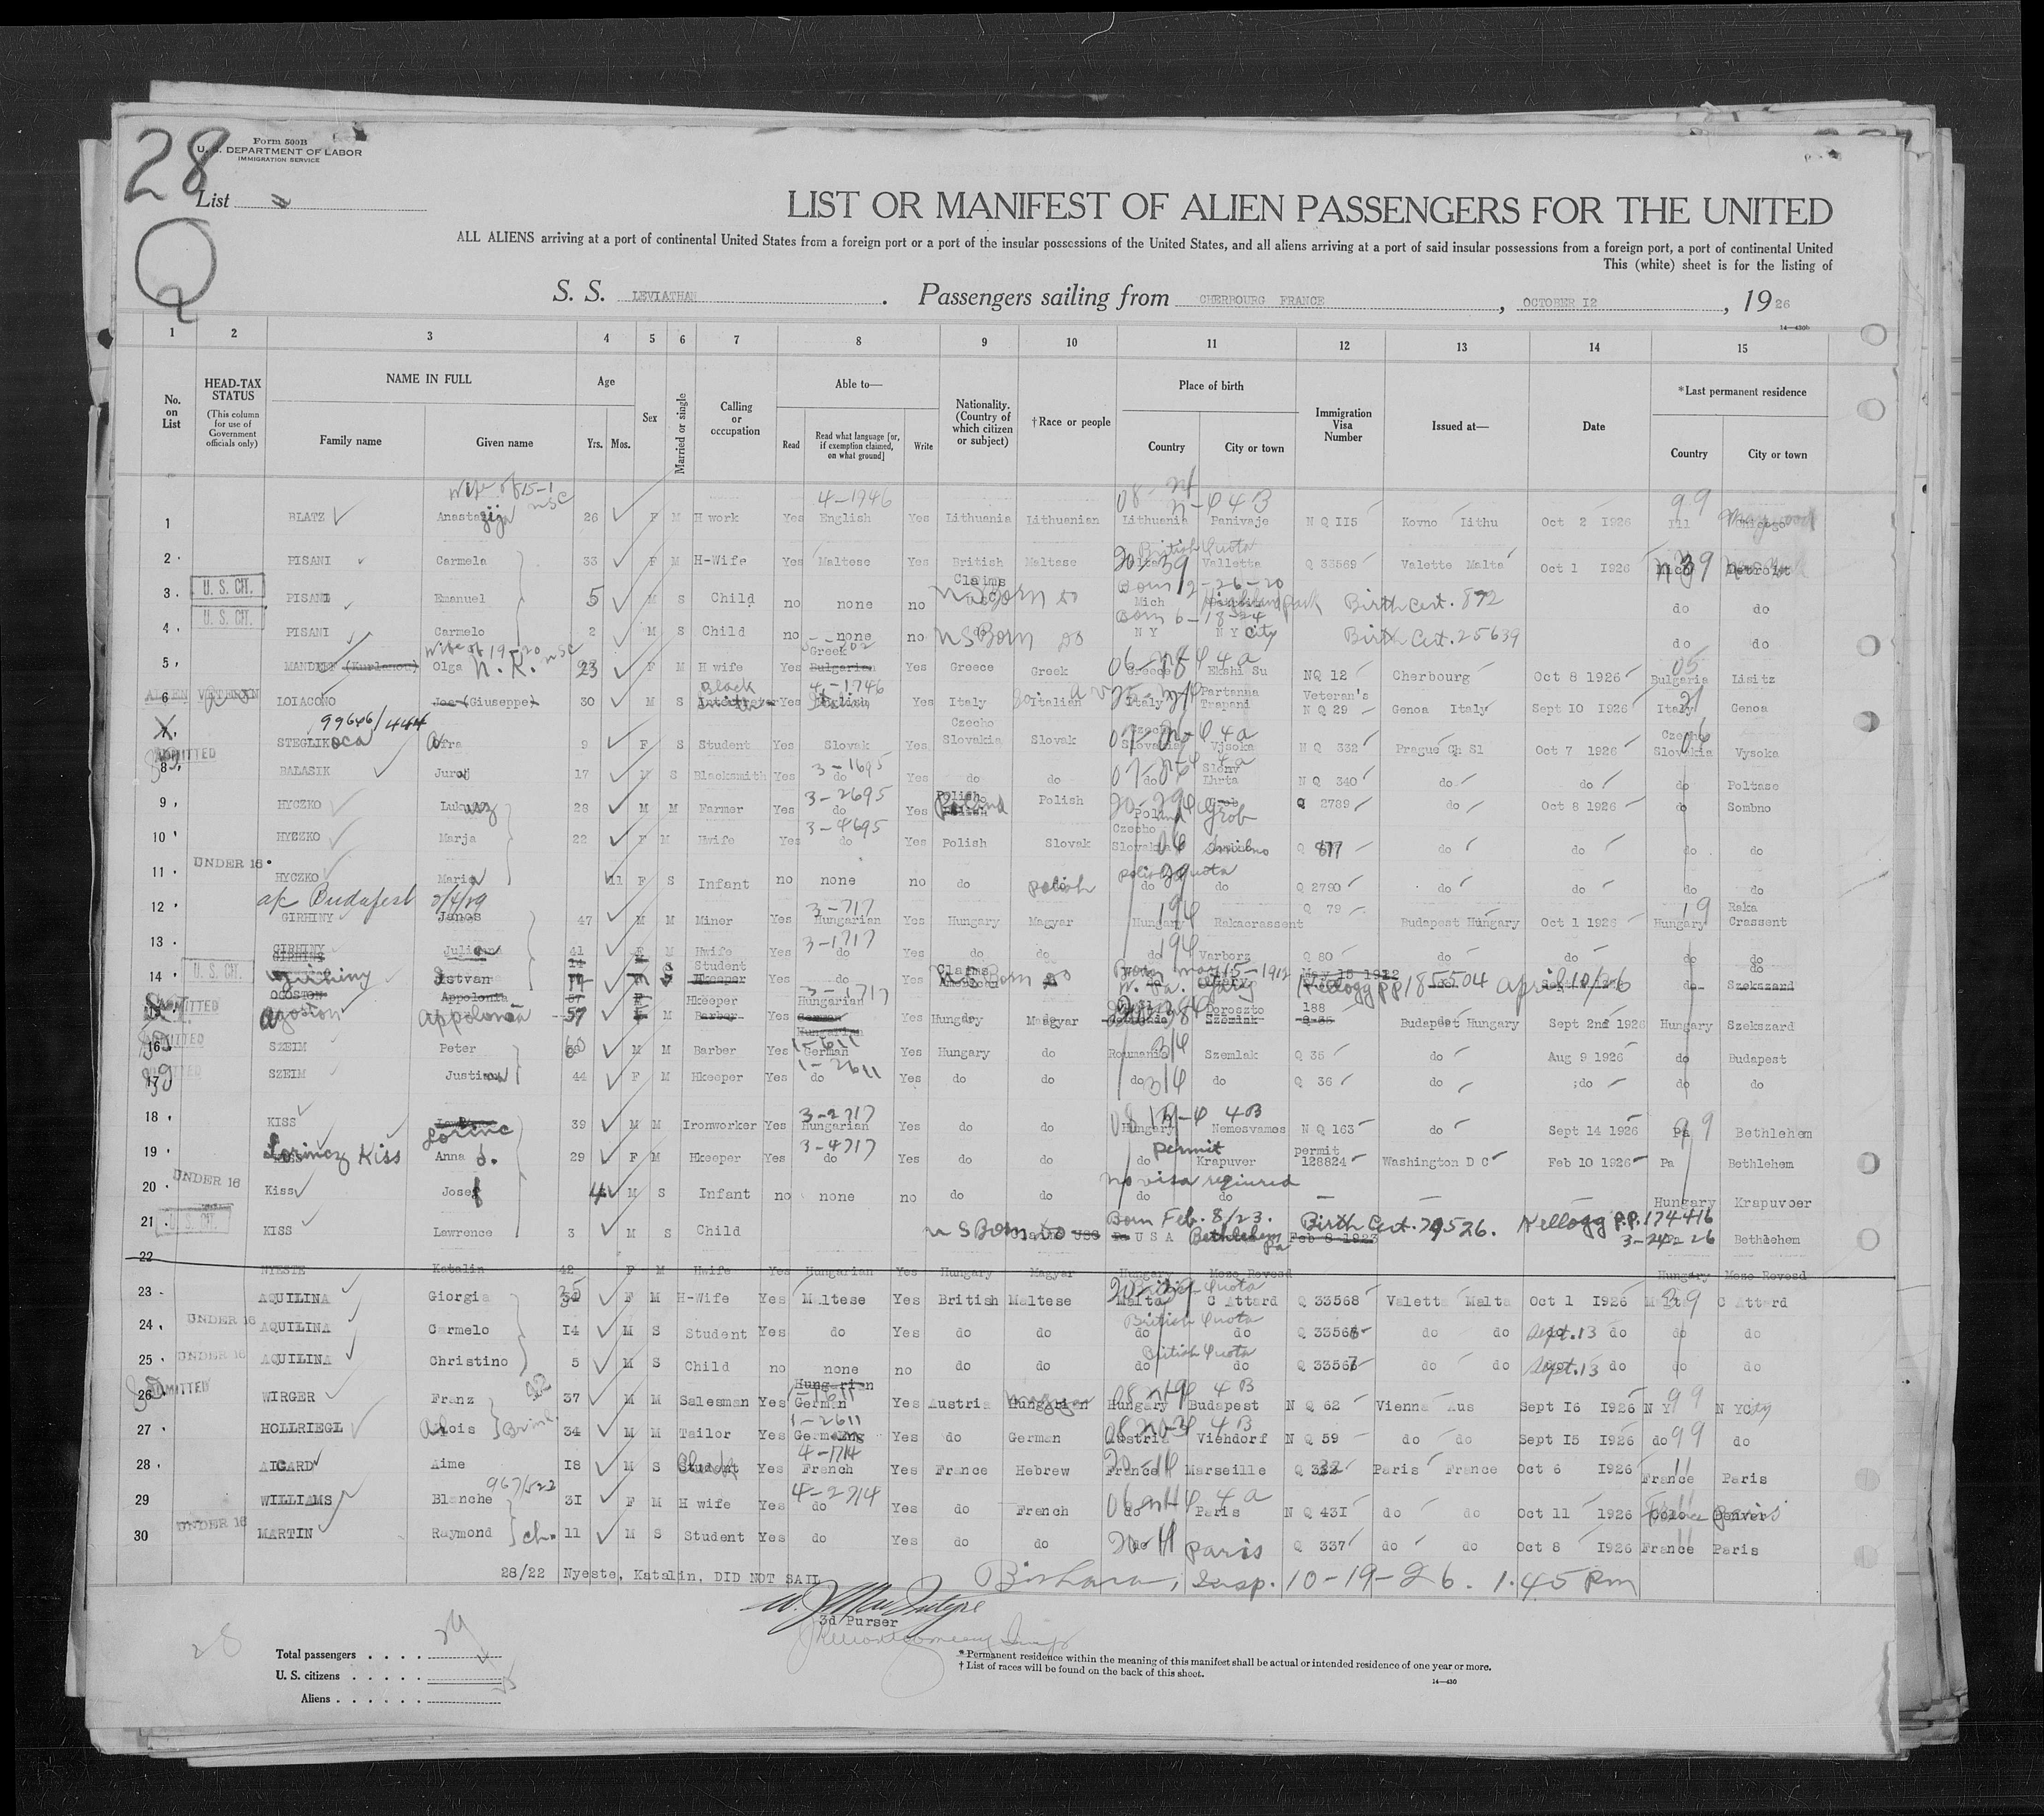 28
Form 500B
U. S. DEPARTMENT OF LABOR
IMMIGRATION SERVICE
List
Q
LIST OR MANIFEST OF ALIEN PASSENGERS FOR THE UNITED
ALL ALIENS arriving at a port of continental United States from a foreign port or a port of the insular possessions of the United States, and all aliens arriving at a port of said insular possessions from a foreign port, a port of continental United
This (white) sheet is for the listing of
S. S. LEVIATHAN . Passengers sailing from CHERBOURG FRANCE , OCTOBER 12 , 1926
14—430b
1 2 3 4 5 6 7 8 9 10 11 12 13 14 15
No. on List
HEAD-TAX STATUS (This column for use of Government officials only)
NAME IN FULL Family name Given name
Age Yrs. Mos.
Sex
Married or single
Calling or occupation
Able to— Read Read what language [or, if exemption claimed, on what ground] Write
Nationality. (Country of which citizen or subject)
†Race or people
Place of birth Country City or town
Immigration Visa Number
Issued at—
Date
*Last permanent residence Country City or town
Wife of 15-1 USC 4-1746
1 BLATZ Anastazija 26 F M H work Yes English Yes Lithuania Lithuanian Lithuania Panivaje N Q 115 Kovno Lithu Oct 2 1926 Ill Chicago
British Quota
2 PISANI Carmela 33 F M H-Wife Yes Maltese Yes British Maltese Valletta Q 33569 Valette Malta Oct 1 1926 Detroit
U. S. CIT. Claims Born 12-26-20
3 PISANI Emanuel 5 M S Child no none no US Born do Mich Highland Park Birth Cert. 872 do do
U. S. CIT. Born 6-18-24
4 PISANI Carmelo 2 M S Child no none no US Born do N Y N Y City Birth Cert. 25639 do do
Wife of 19-20 USC Greek
5 (Kurlanou) Olga N. R. 23 F M H wife Yes Bulgarian Yes Greece Greek Greece Ekshi Su NQ 12 Cherbourg Oct 8 1926 Bulgaria Lisitz
ALIEN VETERAN Black 4-1746 Partanna Veteran's
6 LOIACONO Joe (Giuseppe) 30 M S Yes English Yes Italy Italian Italy Trapani N Q 29 Genoa Italy Sept 10 1926 Italy Genoa
99646/444 Czecho
7 STEGLIK Afra 9 F S Student Yes Slovak Yes Slovakia Slovak Slovakia Vysoka N Q 332 Prague Ch Sl Oct 7 1926 Slovakia Vysoka
ADMITTED 3-1695
8 BALASIK Juroj 17 M S Blacksmith Yes do Yes do do do Lhrta N Q 340 do do do Poltase
3-2695 Polish
9 HYCZKO Lukasz 28 M M Farmer Yes do Yes Poland Polish Poland Grob Q 2789 do Oct 8 1926 do Sombno
3-4695 Czecho
10 HYCZKO Marja 22 F M Hwife Yes do Yes Polish Slovak Slovakia Q 877 do do do do
UNDER 16 Polish Quota
11 HYCZKO Maria 11 F S Infant no none no do Polish do do Q 2790 do do do do
3-717 Q 79 Raka
12 GIRHINY Janos 47 M M Miner Yes Hungarian Yes Hungary Magyar Hungary Rakacrassent Budapest Hungary Oct 1 1926 Hungary Crassent
3-1717
13 GIRHINY 41 F M Hwife Yes do Yes do do do Varborz Q 80 do do do do
U. S. CIT. Student Claims Born May 15-1912 May 15 1912
14 Istvan Hkeeper Yes do Yes W. Va. Gary Kellogg PP 185504 April 10/26 do Szekszard
ADMITTED OGOSTON Appolonia 57 F Hkeeper 3-1717 Hungarian Doroszto 188
Agoston Appolonia 57 Barber Yes Yes Hungary Magyar Szemlak Budapest Hungary Sept 2nd 1926 Hungary Szekszard
ADMITTED 1-611
16 SZEIM Peter M M Barber Yes German Yes Hungary do Roumania Szemlak Q 35 do Aug 9 1926 do Budapest
1-2611
17 SZEIM 44 F M Hkeeper Yes do Yes do do do do Q 36 do do do do
3-2717 4B
18 KISS Lorinc 39 M M Ironworker Yes Hungarian Yes do do Hungary Nemesvames N Q 163 do Sept 14 1926 Pa Bethlehem
3-4717 Permit permit
19 Lorincz Kiss Anna 29 F M Hkeeper Yes do Yes do do do Krapuver 128824 Washington D C Feb 10 1926 Pa Bethlehem
UNDER 16 no visa required
20 Kiss Josef 4 M S Infant no none no do do do do Hungary Krapuvoer
U. S. CIT. Born Feb. 8/23. Birth Cert. Kellogg P.P. 174416
21 KISS Lawrence 3 M S Child US Born do USA Bethlehem Pa Feb 8 1923 Bethlehem
22 NYESTE Katalin 42 F M Hwife Yes Hungarian Yes Hungary Magyar Hungary Mozo Kovosd Hungary Mozo Kovosd
British Quota
23 AQUILINA Giorgia 35 F M H-Wife Yes Maltese Yes British Maltese Malta C Attard Q 33568 Valetta Malta Oct 1 1926 Malta C Attard
UNDER 16 British Quota
24 AQUILINA Carmelo 14 M S Student Yes do Yes do do do do Q 33566 do do Sept. 13 do do do
UNDER 16 British Quota
25 AQUILINA Christino 5 M S Child no none no do do do do Q 33567 do do Sept. 13 do do do
ADMITTED Hungarian 4B
26 WIRGER Franz 37 M M Salesman Yes German Yes Austria Hungarian Hungary Budapest N Q 62 Vienna Aus Sept 16 1926 N Y N Y City
1-2611 4B
27 HOLLRIEGL Alois 34 M M Tailor Yes German Yes do German Austria Viehdorf N Q 59 do do Sept 15 1926 do do
4-1714
28 AICARD Aime 18 M S Student Yes French Yes France Hebrew France Marseille Q 332 Paris France Oct 6 1926 France Paris
967/522 4-2714 4a
29 WILLIAMS Blanche 31 F M H wife Yes do Yes do French do Paris N Q 431 do do Oct 11 1926 Colo Denver
UNDER 16
30 MARTIN Raymond ch. 11 M S Student Yes do Yes do do do Paris Q 337 do do Oct 8 1926 France Paris
28/22 Nyeste, Katalin, DID NOT SAIL
Insp. 10-19-26. 1.45 PM
3d Purser
28
Total passengers . . . . 29
U. S. citizens . . . . .
Aliens . . . . . .
* Permanent residence within the meaning of this manifest shall be actual or intended residence of one year or more.
† List of races will be found on the back of this sheet.
14—430